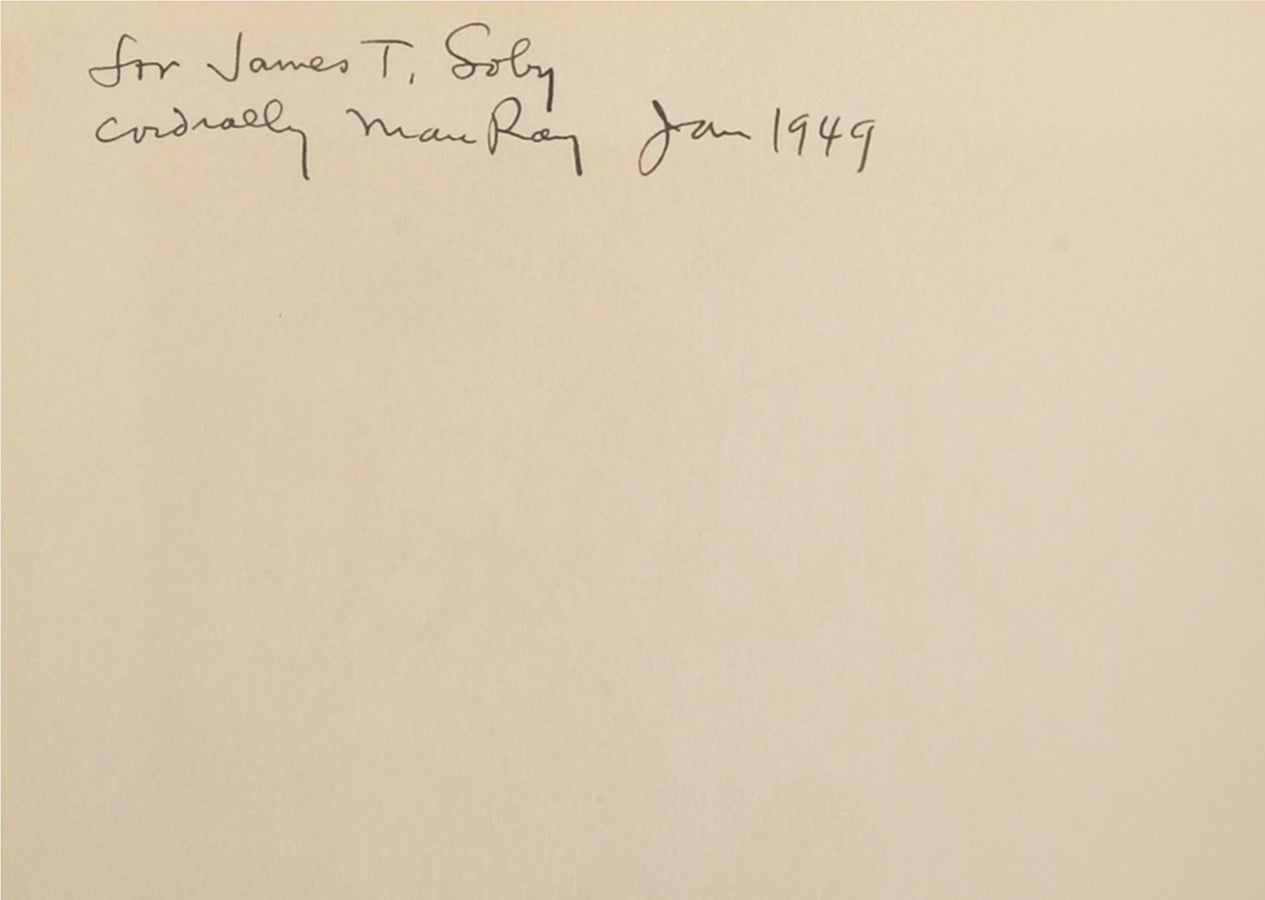 for James T. Soby
cordially Man Ray Jan 1949